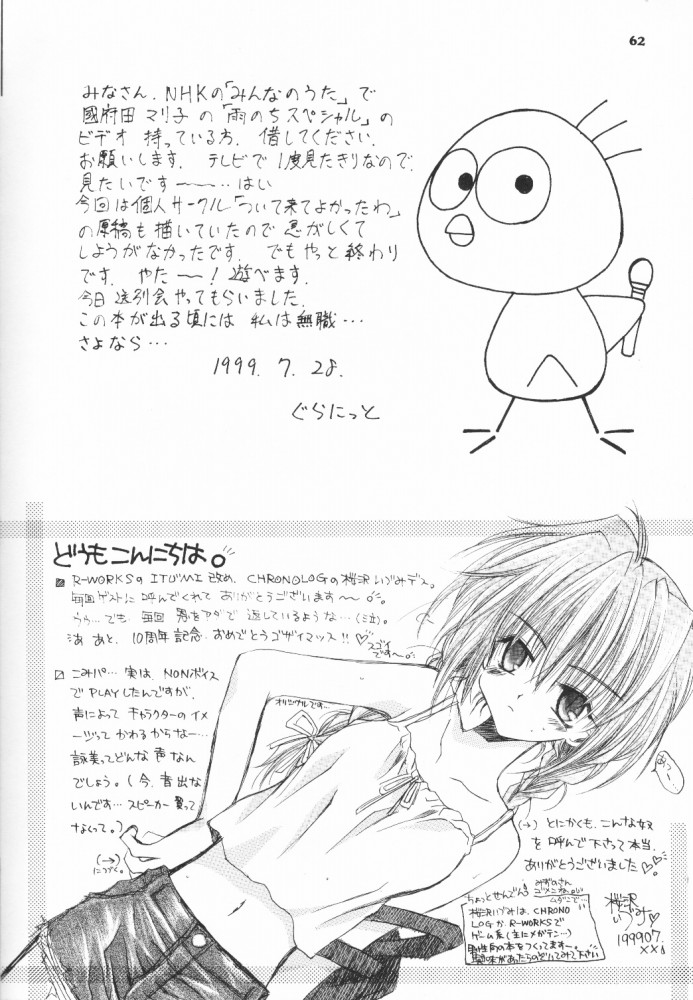 62
みなさん、NHKの「みんなのうた」で
國府田マリ子の「雨のちスペシャル」の
ビデオ持っている方、借してください。
お願いします。テレビで1度見たきりなので、
見たいです～～…はい
今回は個人サークル「ついて来てよかったわ」
の原稿も描いていたので忙がしくて
しょうがなかったです。でもやっと終わり
です。やた～～！遊べます。
今日送別会やってもらいました。
この本が出る頃には私は無職…
さよなら…
1999. 7. 28.
ぐらにっと
どうもこんにちは。
R-WORKSのITUMI改め、CHRONOLOGの桜沢いづみデス。
毎回ゲストに呼んでくれてありがとうございます～～。
うぅ…でも、毎回恩をアダで返しているような…(泣)。
あ、あと、10周年記念、おめでとうゴザイマッス!!♡
スゴイ
です～。
こみパ…実は、NONボイス
でPLAYしたんですが、
声によってキャラクターのイメ
ージってかわるからなー…
詠美ってどんな声なん
でしょう。(今、音出な
いんです…スピーカー買って
なくって。)
(→)
につづく。
オリジナルです…
(→)とにかくも、こんな奴
を呼んで下さって本当、
ありがとうございました♡♡。
ちょっとせんでん。
みずのさん
ゴメンね。
桜沢いづみは、CHRONO
LOGか、R-WORKSで
ゲーム系(主にメガテン…)
男性向の本をつくってます～。
桜沢
いづみ♡
199907.
××